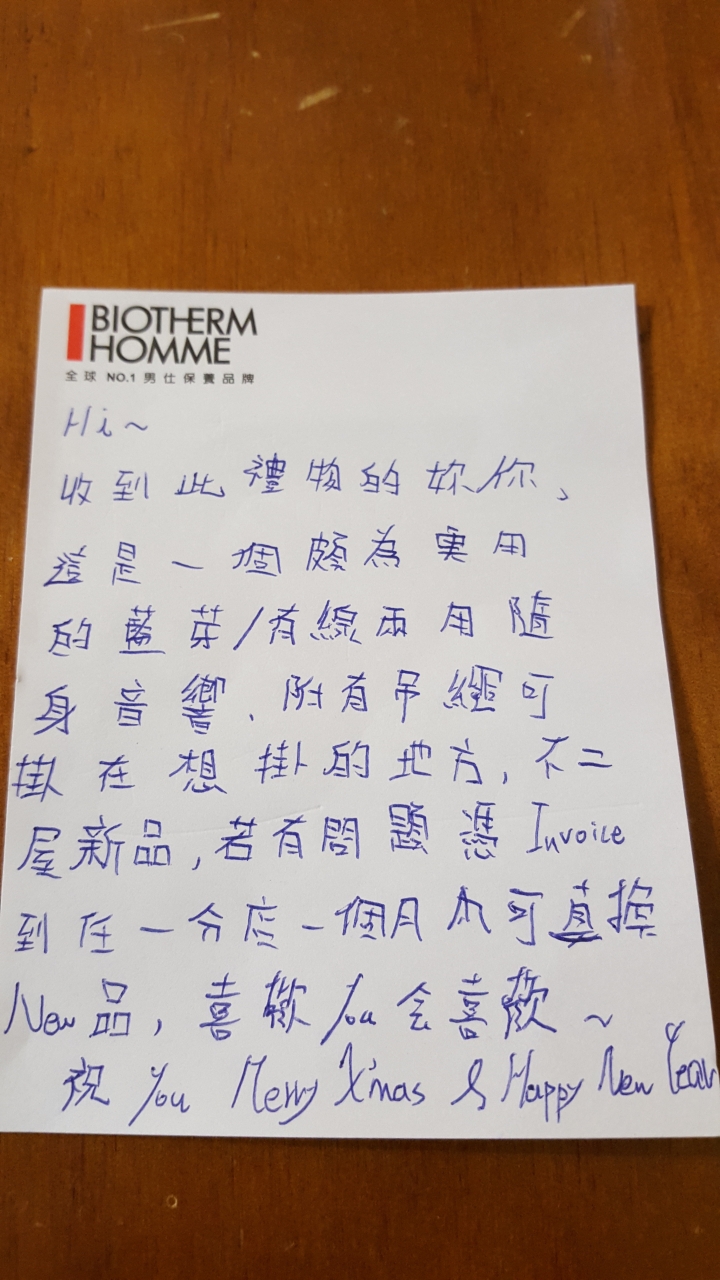 BIOTHERM
HOMME
全球 NO.1 男仕保養品牌
Hi~
收到此禮物的妳/你、
這是一個頗為實用
的藍芽/有線兩用隨
身音響、附有吊繩可
掛在想掛的地方，不二
屋新品，若有問題憑 Invoice
到任一分店一個月內可直換
New品，喜歡 You 会喜歡~
祝 You Merry X'mas & Happy New Year